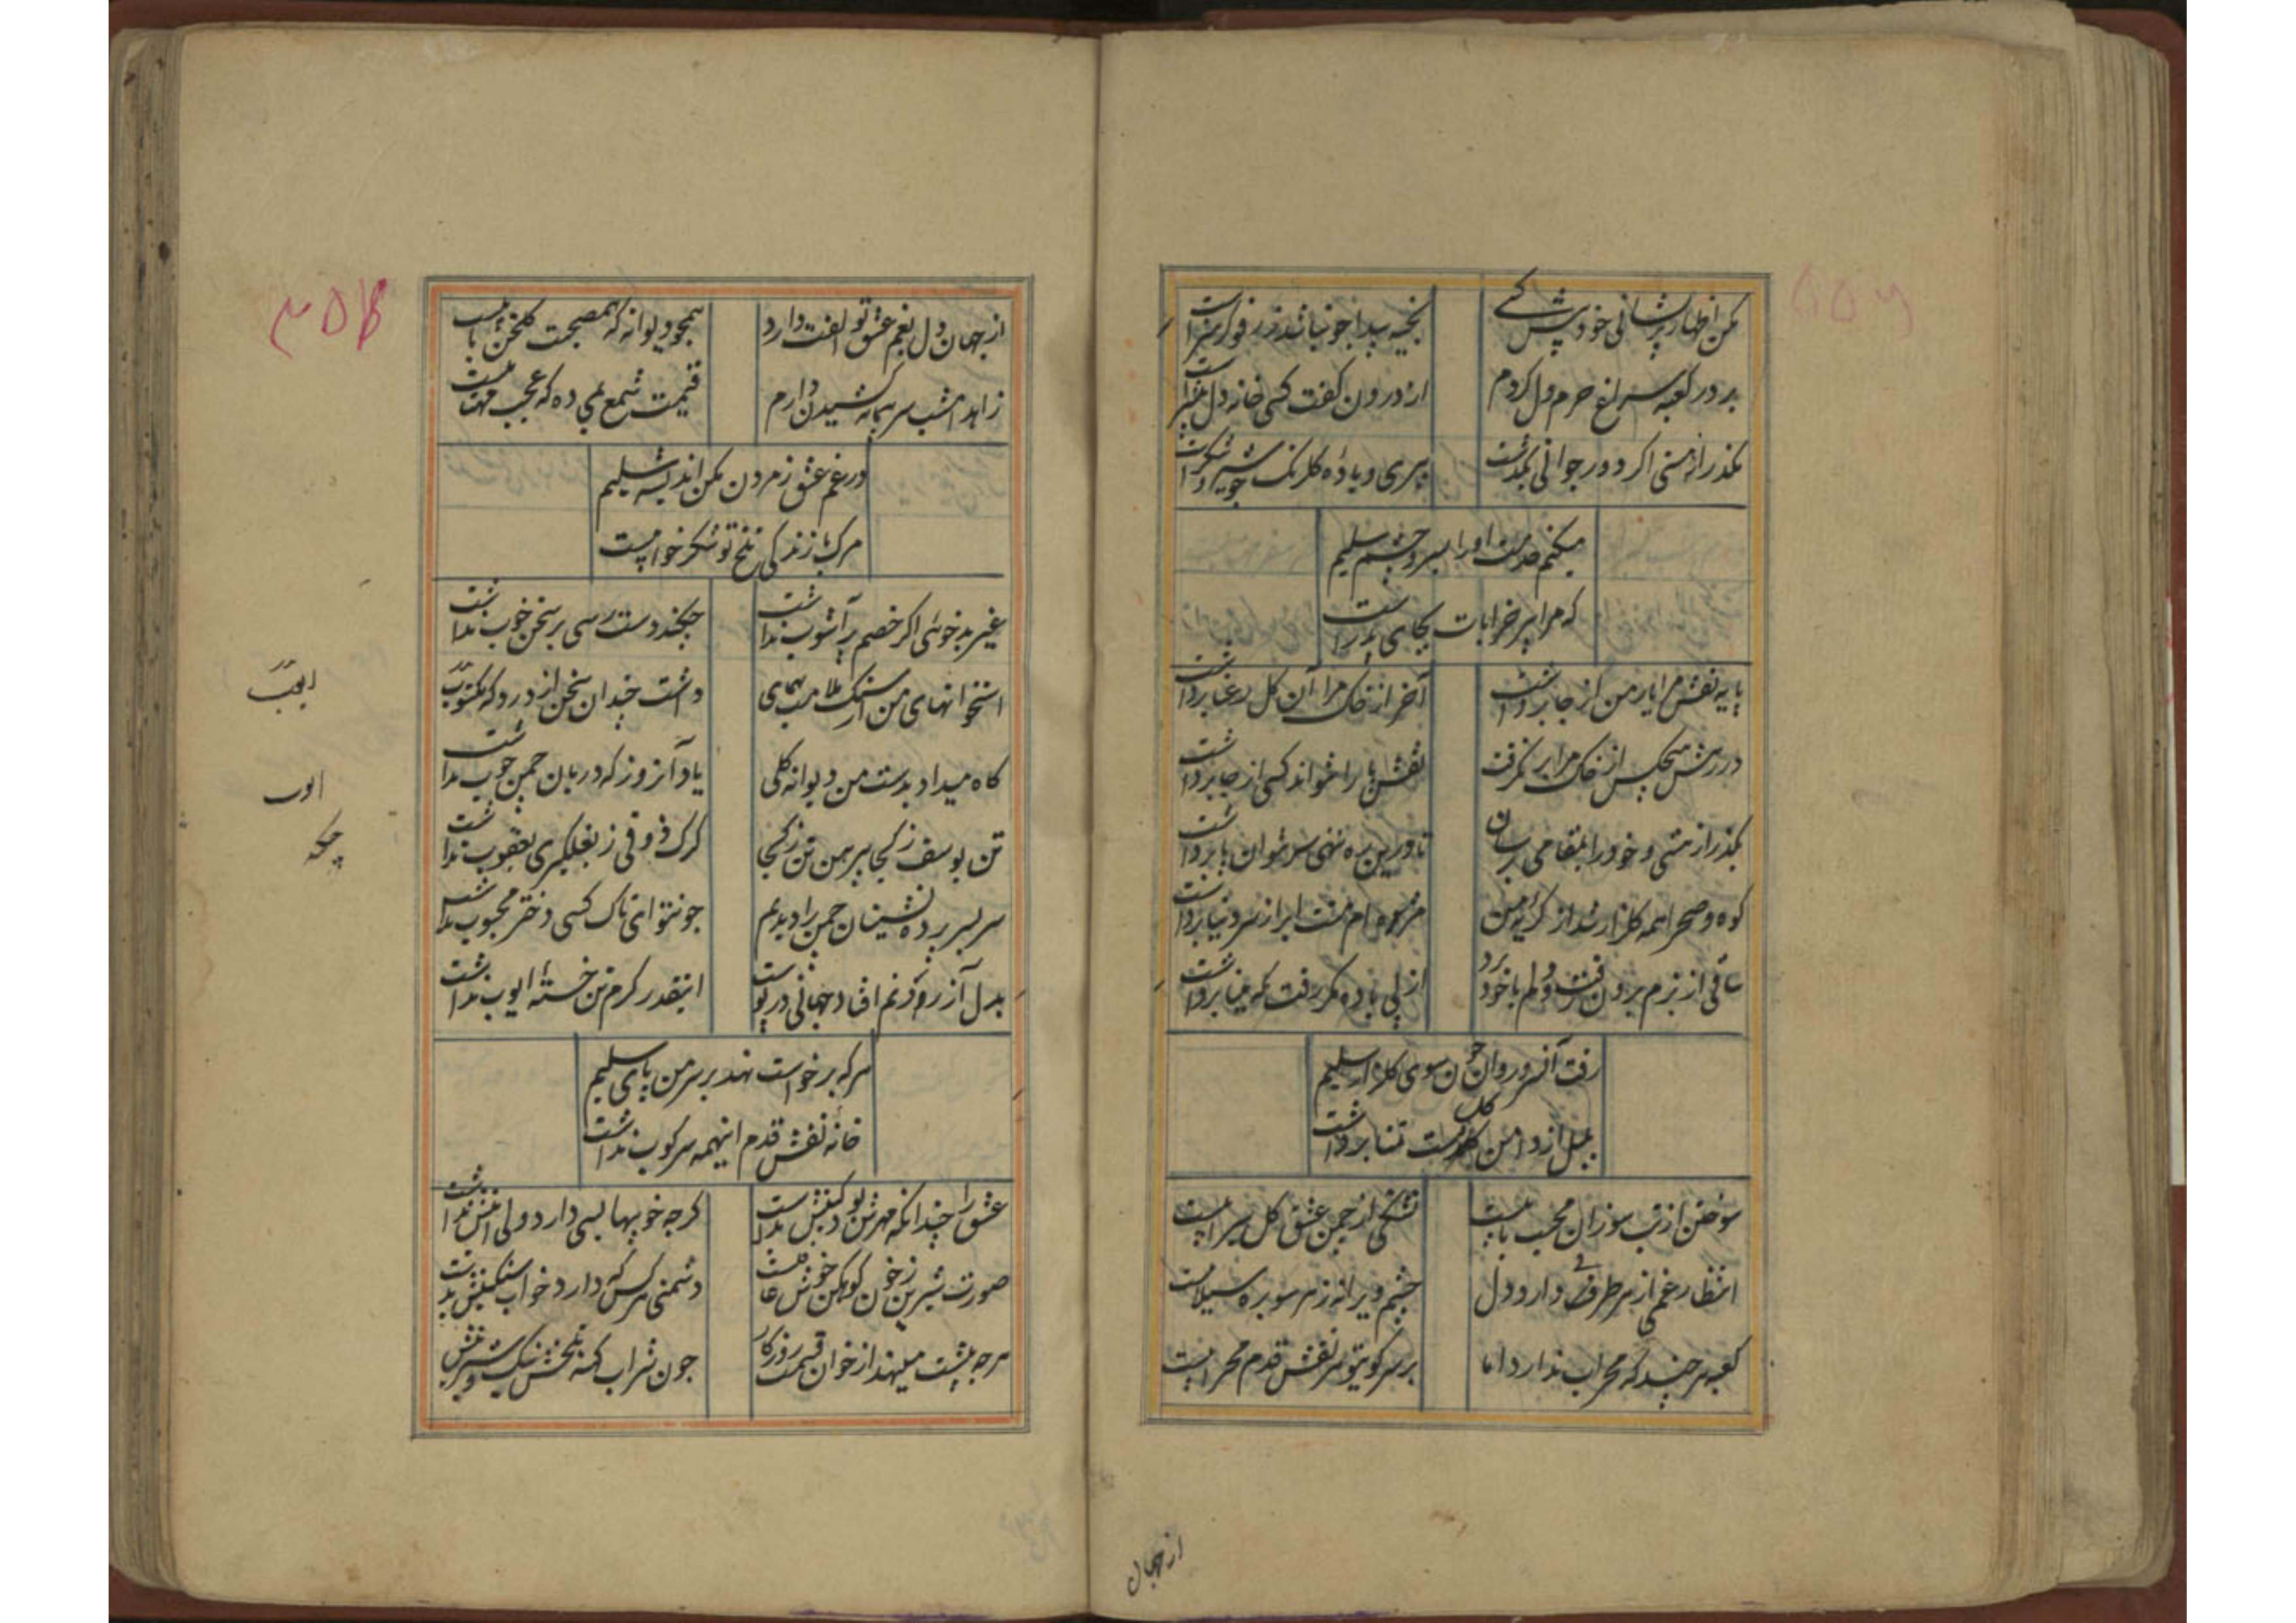 مکن اظهار پریشانی خود پیش کسی
بخیه پیدا چو نباشد ز رفو کمتر است
بر در کعبه سراغ حرم دل کردم
از درون گفت کسی خانه دل
بگذر از مستی اگر دور جوانی بگذشت
پیری و باده گلرنگ چو شیر و شکر است
میکنم خدمت او را بسر و چشم سلیم
که مرا پیر خرابات بجای پدر است
پا به نقش مرا یار من از جا برداشت
آخر از خاک مرا آن گل رعنا برداشت
در رهش هیچکس از خاک مرا بر نگرفت
نقش پا را نتواند کسی از جا برداشت
بگذر از هستی و خود را بمقامی برسان
تا درین ره ننهی سر نتوان پا برداشت
کوه و صحرا همه گلزار شد از گریه من
مژه ام منت ابر از سر دنیا برداشت
ساقی از بزم برون رفت و دلم با خود برد
از پی باده مگر رفت که مینا برداشت
رفت آن سرو روان چون سوی گلزار سلیم
بلبل از دامن گل دست تمنا برداشت
سوختن از تب سوزان محبت بابیست
تشنگی از چمن عشق گل سیرابیست
انتظار غم از هر طرفی دارد دل
چشم ویرانه ز هر سو بره سیلابیست
کعبه هر چند که محراب ندارد اما
بر سر کوی تو هر نقش قدم محرابیست
از جهان
از جهان دل بغم عشق تو الفت دارد
همچو دیوانه که همصحبت گلخن تابیست
زاهد امشب سر پیمانه کشیدن دارم
قیمت شمع بمی ده که عجب مهتابیست
در غم عشق ز مردن مکن اندیشه سلیم
مرگ با زندگی تلخ تو شکر خوابیست
غیر بدخوئی اگر خصم پر آشوب نداشت
چکند دست رسی بر سخن خوب نداشت
استخوانهای من از سنگ ملامت همای
داشت چندان سخن از درد که مکتوب نداشت
گاه میداد بدست من دیوانه گلی
یاد آنروز که دربان چمن چوب نداشت
تن یوسف ز کجا پیرهن تن ز کجا
گرگ ذوقی ز بغلگیری یعقوب نداشت
سر بسر پرده نشینان چمن را دیدم
چون تو ای تاک کسی دختر محبوب نداشت
بدل آزرد کرم افتاد جهانی در پوست
اینقدر کرم تن خسته ایوب نداشت
هر که برخواست نهد بر سر من پای سلیم
خانه نقش قدم اینهمه سرکوب نداشت
عشق را چندانکه مهرش بود کینش نداشت
گرچه خوبیها بسی دارد ولی اینش نداشت
صورت شیرین ز خون کوهکن خوش
دشمنی هر کس که دارد خواب سنگینش
هرچه پیشت مینهد از خوان قسمت روزگار
چون شراب کهنه تلخش نیک و شیرینش
ایوب
چکه